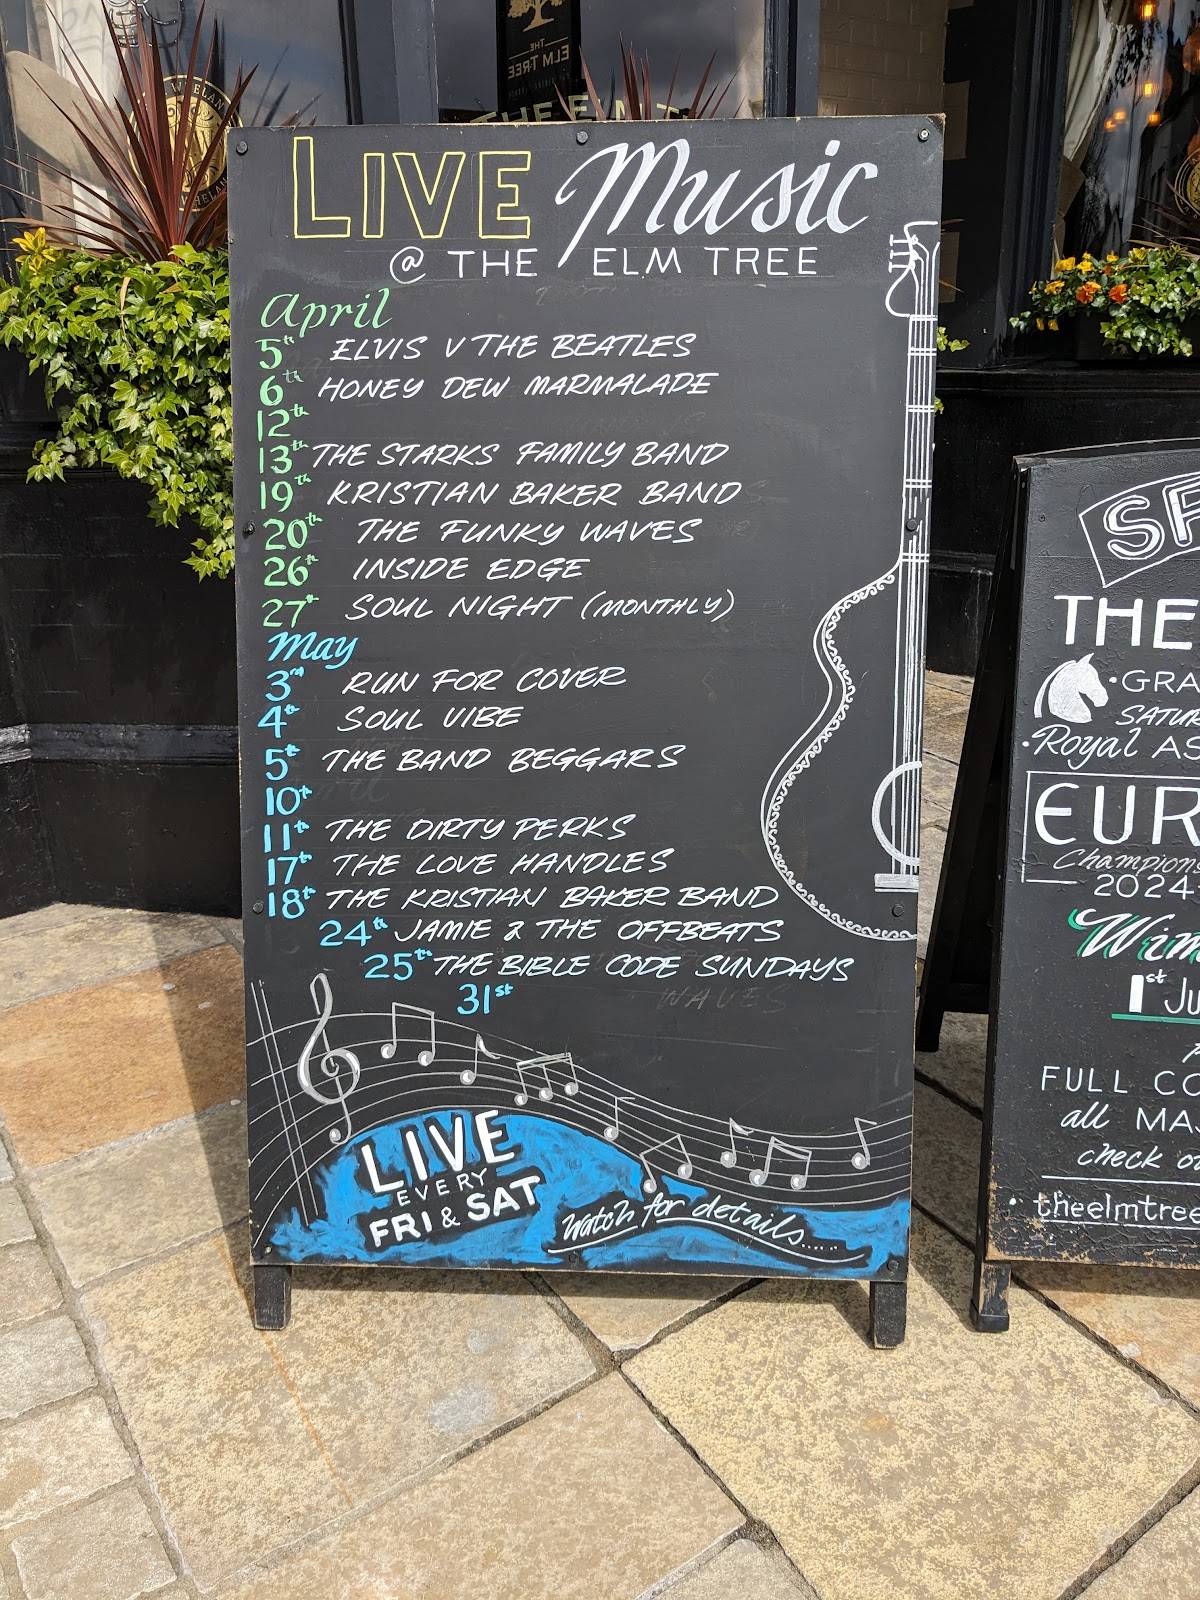 THE
ELM TREE
THE ELM T
WHELAN
LIVE Music
@ THE ELM TREE
April
5th ELVIS V THE BEATLES
6th HONEY DEW MARMALADE
12th
13th THE STARKS FAMILY BAND
19th KRISTIAN BAKER BAND
20th THE FUNKY WAVES
26th INSIDE EDGE
27th SOUL NIGHT (MONTHLY)
May
3rd RUN FOR COVER
4th SOUL VIBE
5th THE BAND BEGGARS
10th
11th THE DIRTY PERKS
17th THE LOVE HANDLES
18th THE KRISTIAN BAKER BAND
24th JAMIE & THE OFFBEATS
25th THE BIBLE CODE SUNDAYS
31st
WAVES
LIVE
EVERY
FRI & SAT
Watch for details.....
SP
THE
• GRA
SATUR
• Royal AS
EUR
Champions
2024
Wim
1st Ju
FULL CO
all MA
check o
• theelmtree